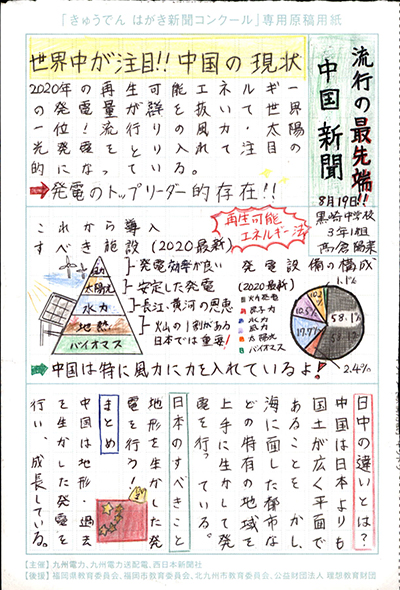 「きゅうでん はがき新聞コンクール」専用原稿用紙
流行の最先端!!
中国新聞
8月19日!!
黒崎中学校
3年1組
高倉陽菜
世界中が注目!!中国の現状
2020年の再生可能エネルギー
の発電量が群を抜いて世界
一位!流行りの風力・太陽
光発電をとり入れて注目の
的になっている。
発電のトップリーダー的存在!!
これから導入
すべき施設(2020最新)
再生可能
エネルギー法
風力
太陽光
水力
地熱
バイオマス
発電効率が良い
安定した発電
長江、黄河の恩恵
火山の1割がある
日本では重要!
発電設備の構成
(2020最新)
火力発電
原子力
水力
風力
太陽光
バイオマス
1.1%
10.2%
10.5%
17.7%
58.1%
2.4%
中国は特に風力に力を入れているよ!
日中の違いとは?
中国は日本よりも
国土が広く平面で
あることを かし、
海に面した都市な
どの特有の地域を
上手に生かして発
電を行っている。
日本のすべきこと
地形を生かした発
電を行う!
まとめ
中国は地形・過去
を生かした発電を
行い、成長している。
【主催】九州電力、九州電力送配電、西日本新聞社
【後援】福岡県教育委員会、福岡市教育委員会、北九州市教育委員会、公益財団法人 理想教育財団